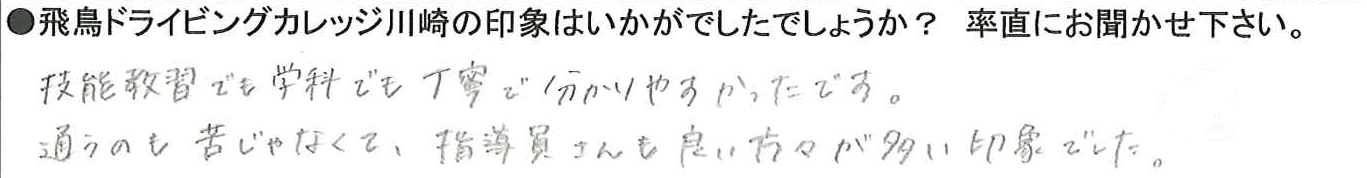 ●飛鳥ドライビングカレッジ川崎の印象はいかがでしたでしょうか？ 率直にお聞かせ下さい。
技能教習でも学科でも丁寧で分かりやすかったです。
通うのも苦じゃなくて、指導員さんも良い方々が多い印象でした。